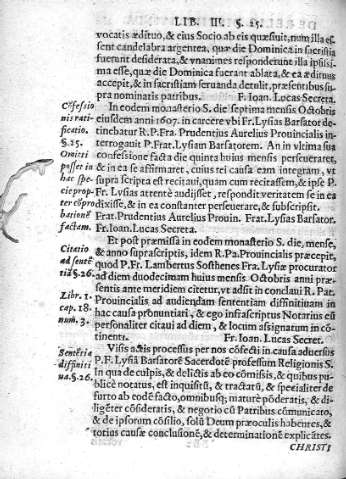 LIB. III. §. 25.
vocatis ædituo, & eius Socio ab eis quæsiuit, num illa es-
sent candelabra argentea, quæ die Dominica in sacristia
fuerunt desiderata, & vnanimes responderunt illa ipsissi-
ma esse, quæ die Dominica fuerant ablata, & ea ædituus
accepit, & in sacristiam seruanda detulit, præsentibus su-
pra nominatis patribus. F. Ioan. Lucas Secreta.
Cōfessio
nis rati-
ficatio.
§.25.
Omitti
posset in
hac spe-
cie prop-
ter cōro-
bationē
factam.
In eodem monasterio S. die septima mensis Octobris
eiusdem anni 1607. in carcere vbi Fr. Lysias Barsator de-
tinebatur R.P. Fra. Prudentius Aurelius Prouincialis in-
terrogauit P. Frat. Lysiam Barsatorem. An in vltima sua
confessione facta die quinta huius mensis perseueraret,
& in ea se affirmaret, cuius rei causa eam integram, vt
supra scripta est recitaui, quam cum recitassem, & ipse P.
Fr. Lysias attentè audisset, respondit veritatem se in ea
dixisse, & in ea constanter perseuerare, & subscripsit.
Frat. Prudentius Aurelius Prouin. Frat. Lysias Barsator.
Fr. Ioan. Lucas Secreta.
Citatio
ad sentē
tiā §.26.
Libr. 1.
cap. 18.
num. 3.
Et post præmissa in eodem monasterio S. die, mense,
& anno suprascriptis, idem R. Pa. Prouincialis præcepit,
quod P. Fr. Lambertus Sosthenes Fra. Lysiæ procurator
ad diem duodecimam huius mensis Octobris anni præ-
sentis ante meridiem citetur, vt adsit in conclaui R. Pat.
Prouincialis ad audiendam sententiam diffinitiuam in
hac causa pronuntiari, & ego infrascriptus Notarius eū
personaliter citaui ad diem, & locum assignatum in cō-
tinenti. Fr. Ioan. Lucas Secret.
Sentētia
diffiniti
ua. §.26.
Visis actis processus per nos cōfecti in causa aduersus
P. F. Lysiā Barsatorē Sacerdotē professum Religionis S.
In qua de culpis, & delictis ab eo cōmissis, & quibus pu-
blicè notatus, est inquisitū, & tractatū, & specialiter de
furto ab eodē facto, omnibusq; maturè pōderatis, & di-
ligēter cōsideratis, & negotio cū Patribus cōmunicato,
& de ipsorum cōsilio, solū Deum præ oculis habentes, &
totius causæ conclusionē, & determinationē explicātes.
CHRISTI